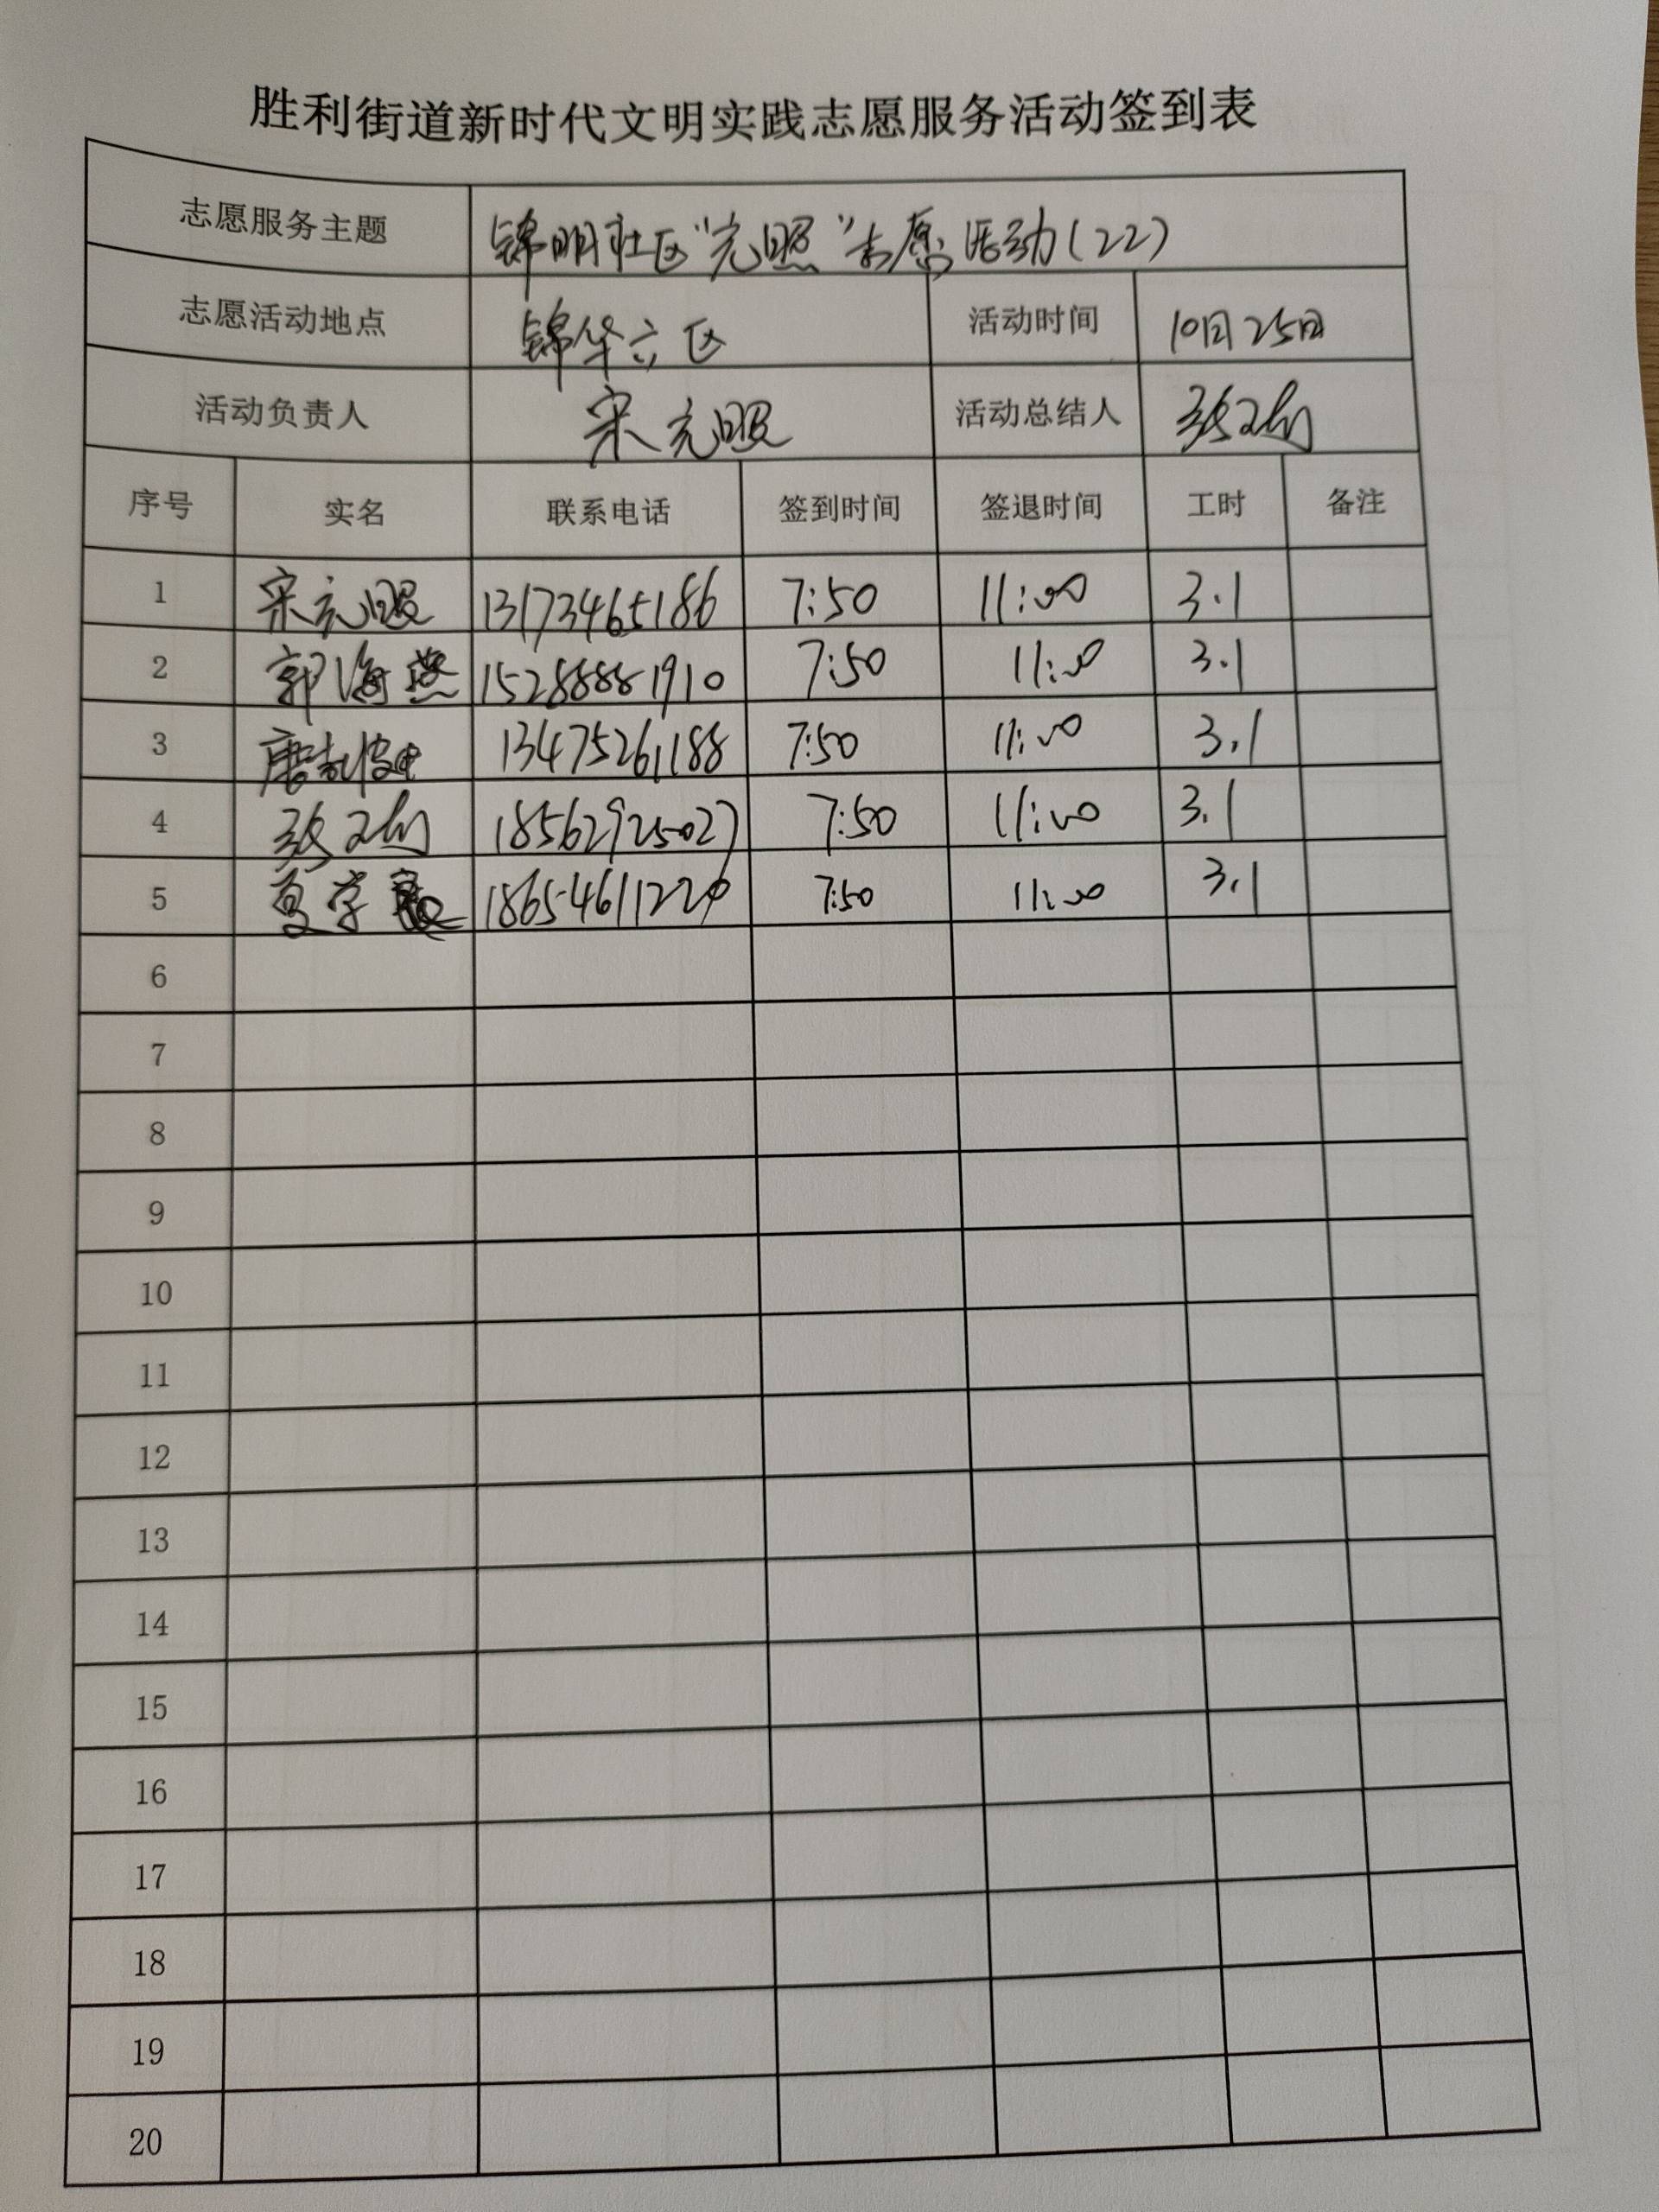 胜利街道新时代文明实践志愿服务活动签到表
志愿服务主题 锦明社区“元照”志愿活动(22)
志愿活动地点 锦华六区 活动时间 10月25日
活动负责人 宋元照 活动总结人
序号 实名 联系电话 签到时间 签退时间 工时 备注
1 宋元照 13173465186 7:50 11:00 3.1
2 郭海燕 15288881910 7:50 11:00 3.1
3 13475261188 7:50 11:00 3.1
4 18562925027 7:50 11:00 3.1
5 夏学 7:50 11:00 3.1
6
7
8
9
10
11
12
13
14
15
16
17
18
19
20